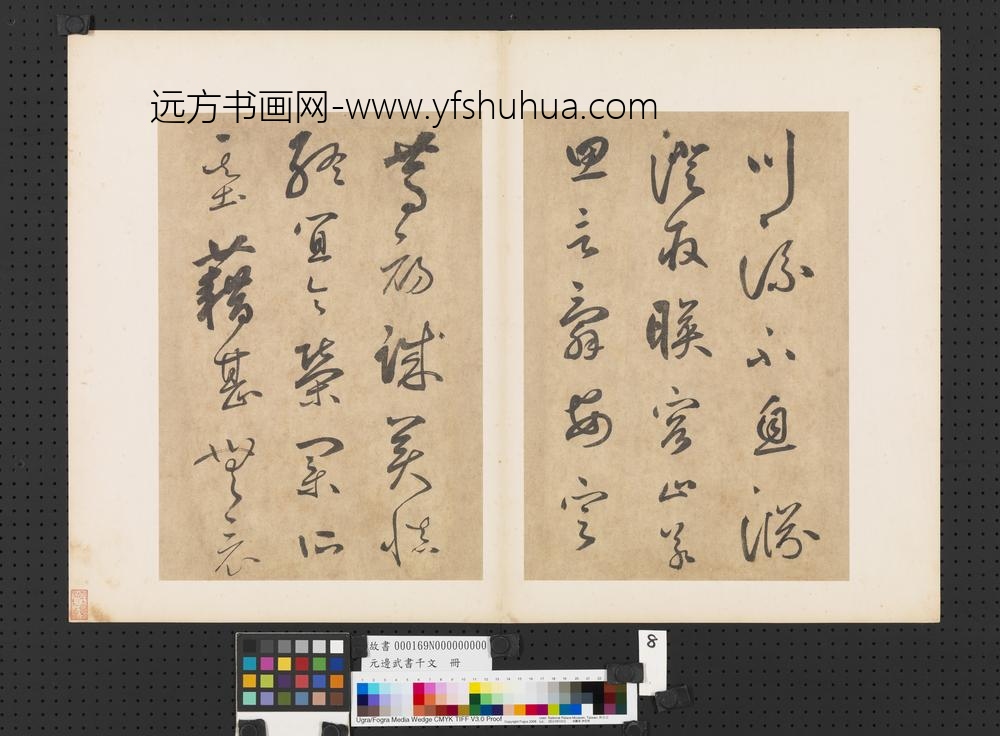 远方书画网-www.yfshuhua.com
川流不息淵
澄取暎容止若
思言辭安定
篤初誠美慎
終宜令榮業所
基藉甚無竟
故書 000169N000000000
元邊武書千文 冊
8
Ugra/Fogra Media Wedge CMYK TIFF V3.0 Proof